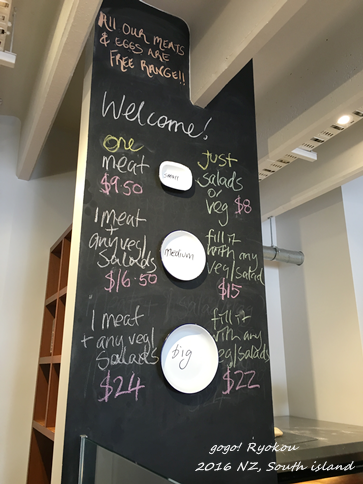 All OUR MEATS
& EGGS ARE
FREE RANGE!!
Welcome!
one
meat
$9.50
small
just
salads
or
veg $8
1 meat
+
any veg/
salads
$16.50
medium
fill it
with any
veg/salad
$15
1 meat
+ any veg/
salads
$24
big
fill it
with any
veg/salads
$22
gogo! Ryokou
2016 NZ, South island